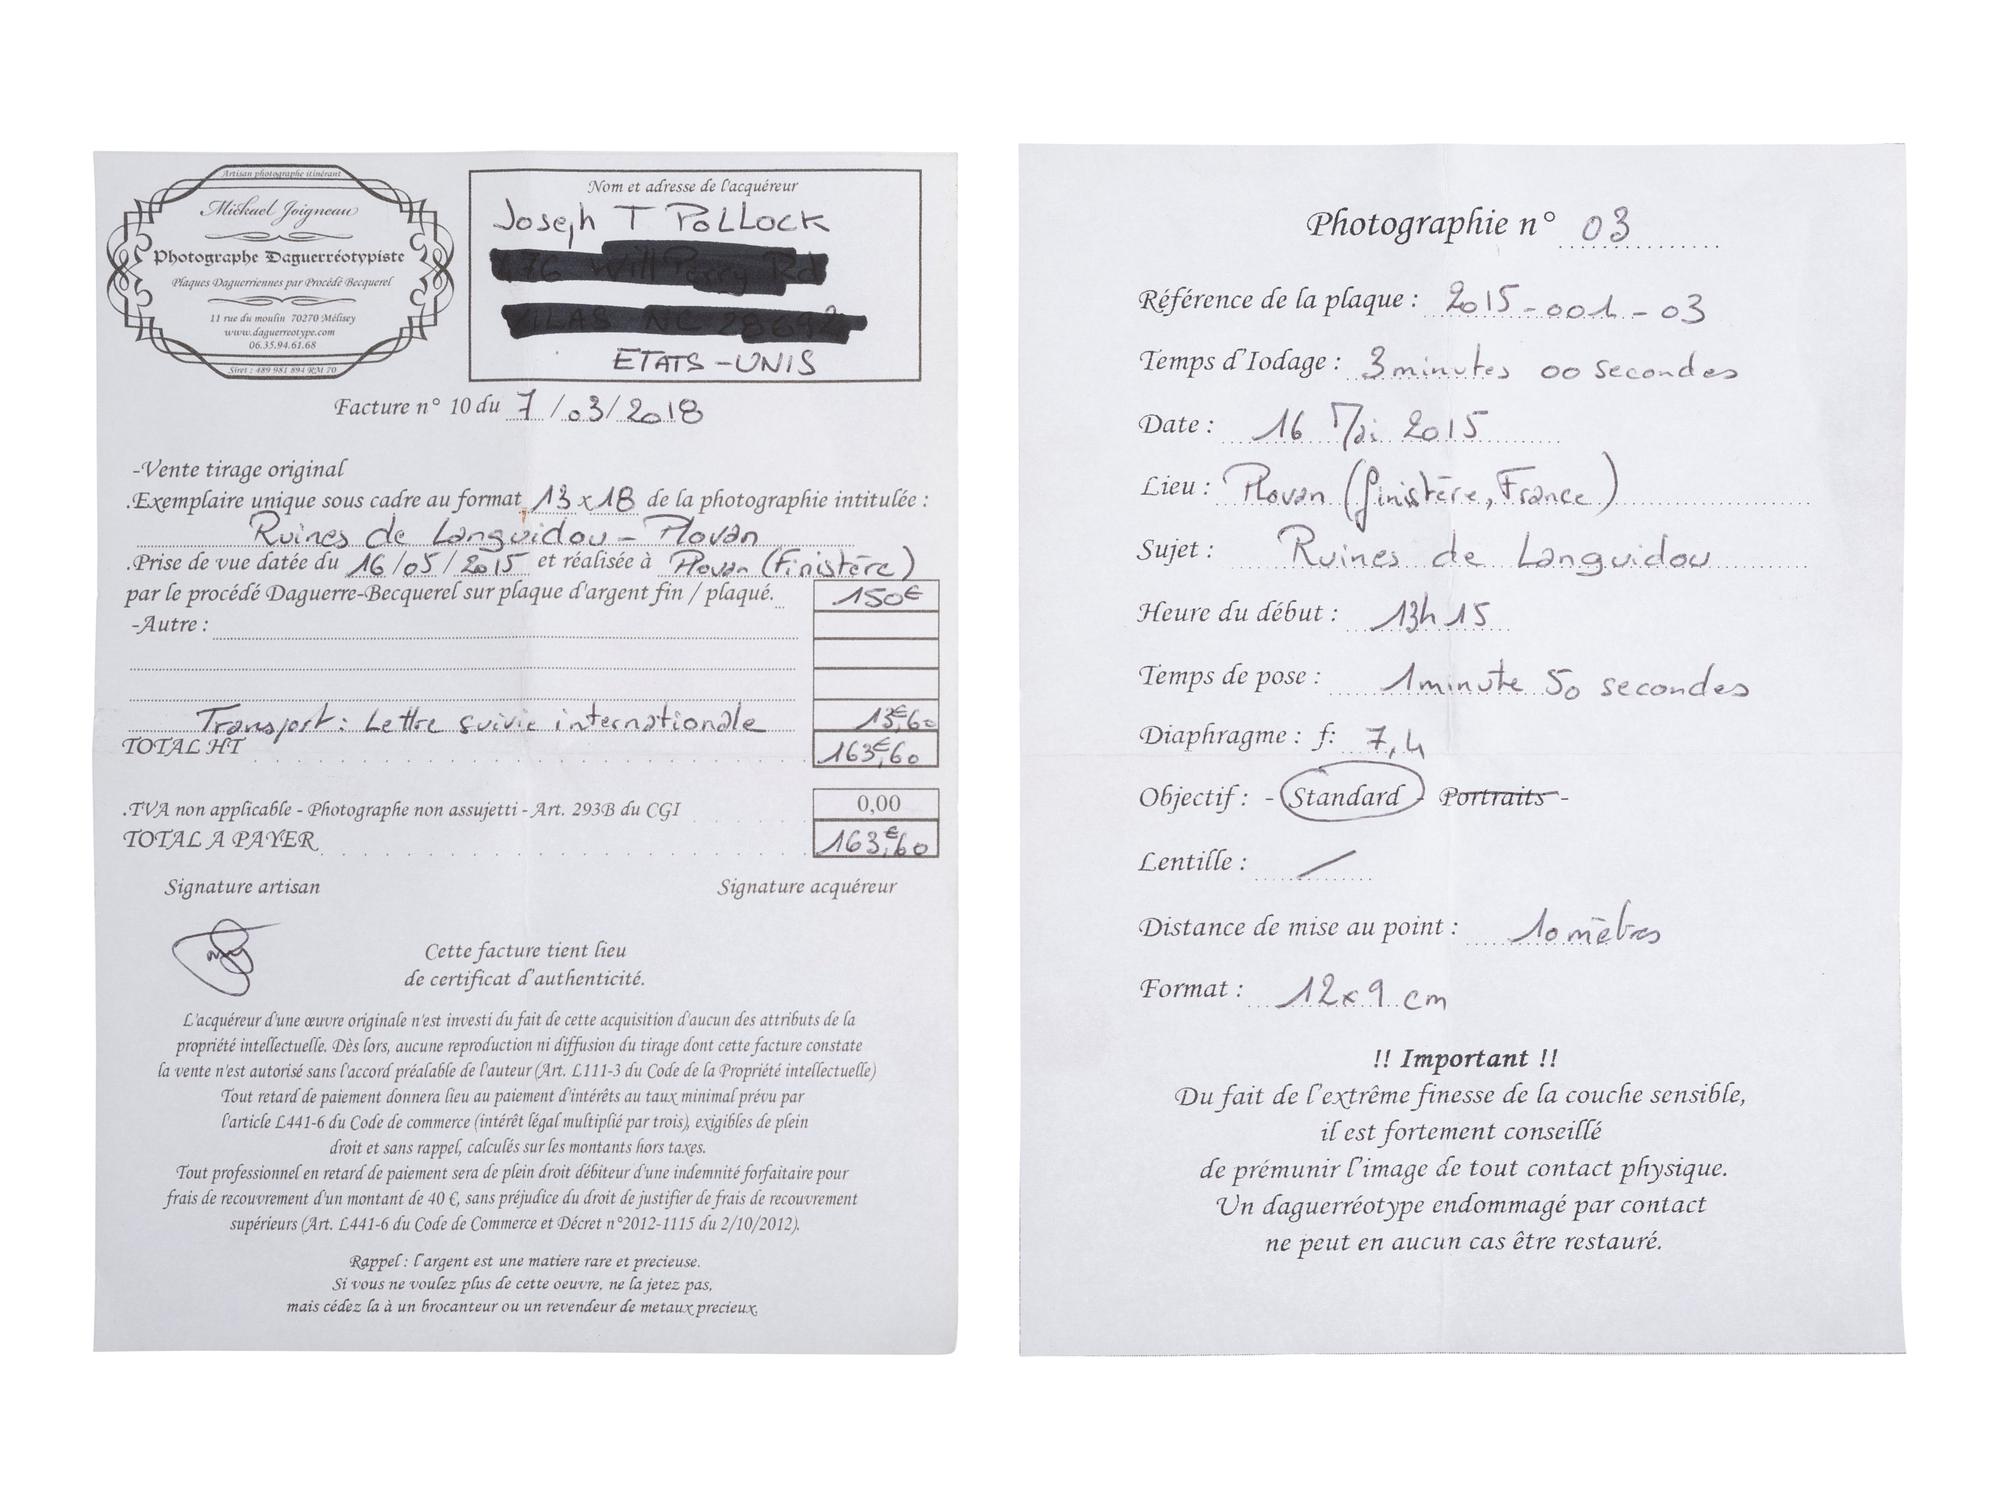 Artisan photographe itinérant
Mickael Joigneau
Photographe Daguerréotypiste
Plaques Daguerriennes par Procédé Becquerel
11 rue du moulin 70270 Mélisey
www.daguerreotype.com
06.35.94.61.68
Siret : 489 981 894 RM 70
Nom et adresse de l'acquéreur
Joseph T POLLOCK
ETATS-UNIS
Facture n° 10 du 7/03/2018
-Vente tirage original
.Exemplaire unique sous cadre au format 13 x 18 de la photographie intitulée :
Ruines de Languidou - Plovan
.Prise de vue datée du 16/05/2015 et réalisée à Plovan (Finistère)
par le procédé Daguerre-Becquerel sur plaque d'argent fin / plaqué. 150€
-Autre :
Transport : Lettre suivie internationale 13€,60
TOTAL HT 163€,60
.TVA non applicable - Photographe non assujetti - Art. 293B du CGI 0,00
TOTAL A PAYER 163€,60
Signature artisan Signature acquéreur
Cette facture tient lieu
de certificat d'authenticité.
L'acquéreur d'une œuvre originale n'est investi du fait de cette acquisition d'aucun des attributs de la
propriété intellectuelle. Dès lors, aucune reproduction ni diffusion du tirage dont cette facture constate
la vente n'est autorisé sans l'accord préalable de l'auteur (Art. L111-3 du Code de la Propriété intellectuelle)
Tout retard de paiement donnera lieu au paiement d'intérêts au taux minimal prévu par
l'article L441-6 du Code de commerce (intérêt légal multiplié par trois), exigibles de plein
droit et sans rappel, calculés sur les montants hors taxes.
Tout professionnel en retard de paiement sera de plein droit débiteur d'une indemnité forfaitaire pour
frais de recouvrement d'un montant de 40 €, sans préjudice du droit de justifier de frais de recouvrement
supérieurs (Art. L441-6 du Code de Commerce et Décret n°2012-1115 du 2/10/2012).
Rappel : l'argent est une matiere rare et precieuse.
Si vous ne voulez plus de cette oeuvre, ne la jetez pas,
mais cédez la à un brocanteur ou un revendeur de metaux precieux.
Photographie n° 03
Référence de la plaque : 2015-001-03
Temps d'Iodage : 3 minutes 00 secondes
Date : 16 Mai 2015
Lieu : Plovan (finistère, France)
Sujet : Ruines de Languidou
Heure du début : 13h15
Temps de pose : 1 minute 50 secondes
Diaphragme : f: 7,4
Objectif : - Standard - Portraits -
Lentille : /
Distance de mise au point : 10 mètres
Format : 12x9 cm
!! Important !!
Du fait de l'extrême finesse de la couche sensible,
il est fortement conseillé
de prémunir l'image de tout contact physique.
Un daguerréotype endommagé par contact
ne peut en aucun cas être restauré.